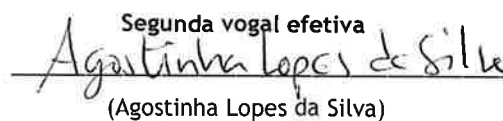 Segunda vogal efetiva
Agostinha Lopes da Silva
(Agostinha Lopes da Silva)